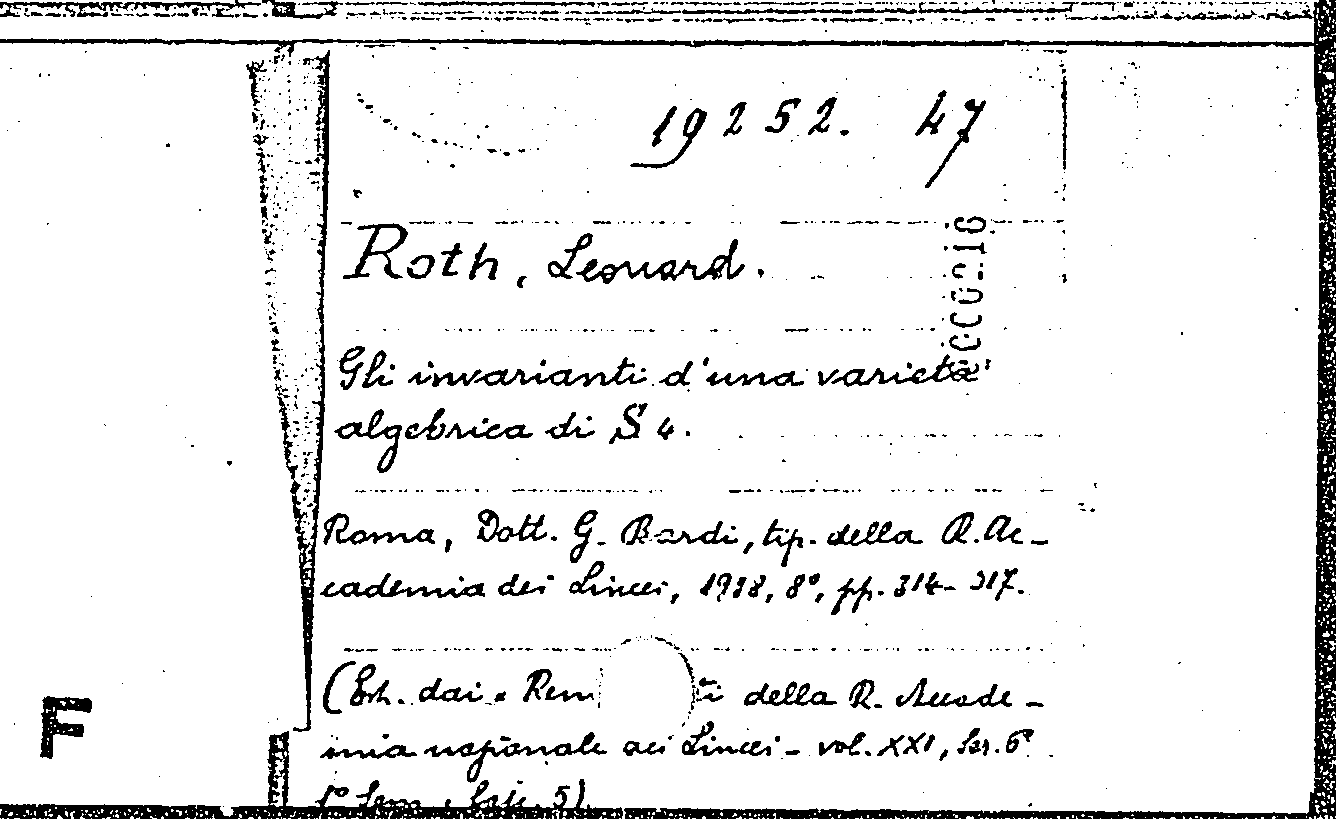 19252. 47
Roth, Leonard.
Gli invarianti d'una varietà
algebrica di S 4.
Roma, Dott. G. Bardi, tip. della R. Ac-
cademia dei Lincei, 1938, 8°, pp. 314-317.
(Estr. dai " Ren ti della R. Accade-
mia nazionale dei Lincei - vol. XXI, Ser. 6ª
1° Sem., fasc. 5)
F